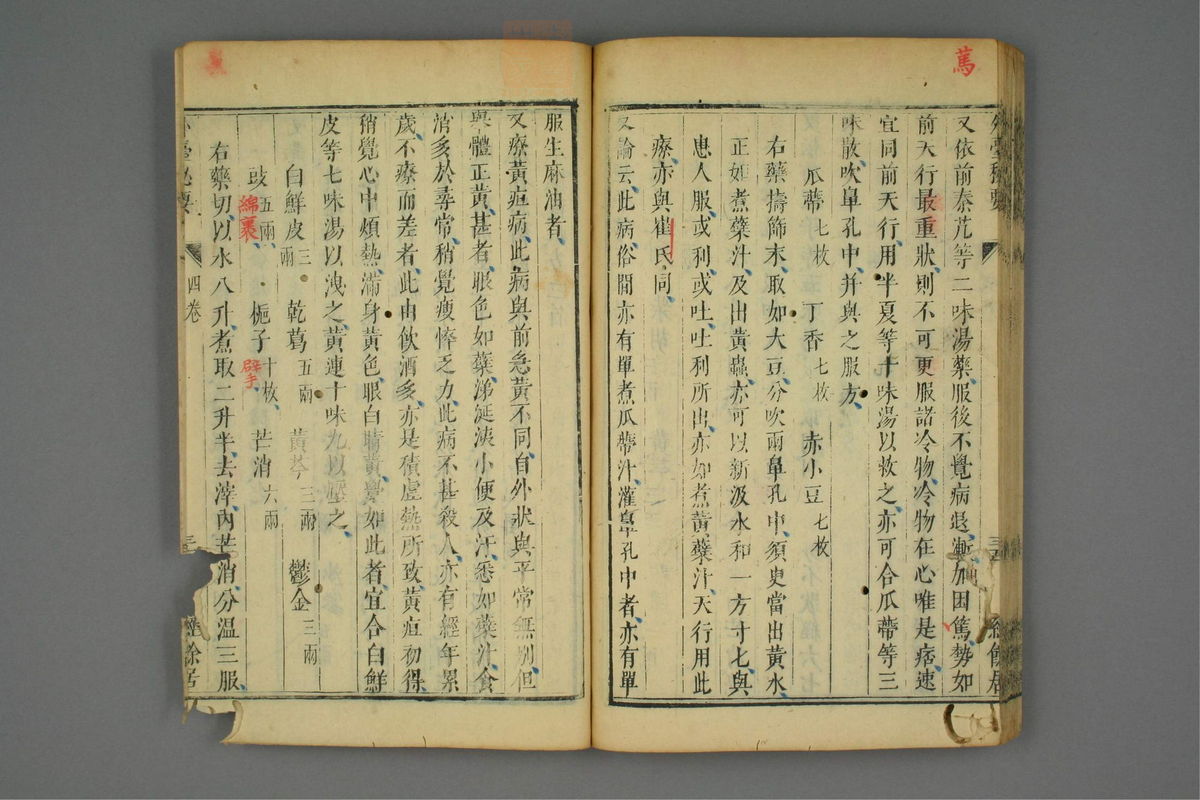 蔿
外臺秘要
又依前秦艽等二味湯藥服後不覺病退漸加困篤勢如
前天行最重狀則不可更服諸冷物冷物在心唯是痞速
宜同前天行用半夏等十味湯以救之亦可合瓜蔕等三
味散吹鼻孔中并與之服方
瓜蔕七枚 丁香七枚 赤小豆七枚
右藥擣篩末取如大豆分吹兩鼻孔中須臾當出黃水
正如煮蘗汁及出黃蟲亦可以新汲水和一方寸匕與
患人服或利或吐吐利所出亦如煮黃蘗汁天行用此
療亦與崔氏同
又論云此病俗間亦有單煮瓜蔕汁灌鼻孔中者亦有單
服生麻油者
又療黃疸病此病與前急黃不同自外狀與平常無別但
舉體正黃甚者眼色如蘗涕涎洟小便及汗悉如蘗汁食
消多於尋常稍覺瘦悴乏力此病不甚殺人亦有經年累
歲不療而差者此由飲酒多亦是積虛熱所致黃疸初得
稍覺心中煩熱滿身黃色眼白睛黃覺如此者宜合白鮮
皮等七味湯以洩之黃連十味丸以壓之
白鮮皮三兩 乾葛五兩 黃芩三兩 鬱金三兩
豉五兩綿裹 梔子十枚擘 芒消六兩
右藥切以水八升煮取二升半去滓內芒消分溫三服
四卷
經餘居